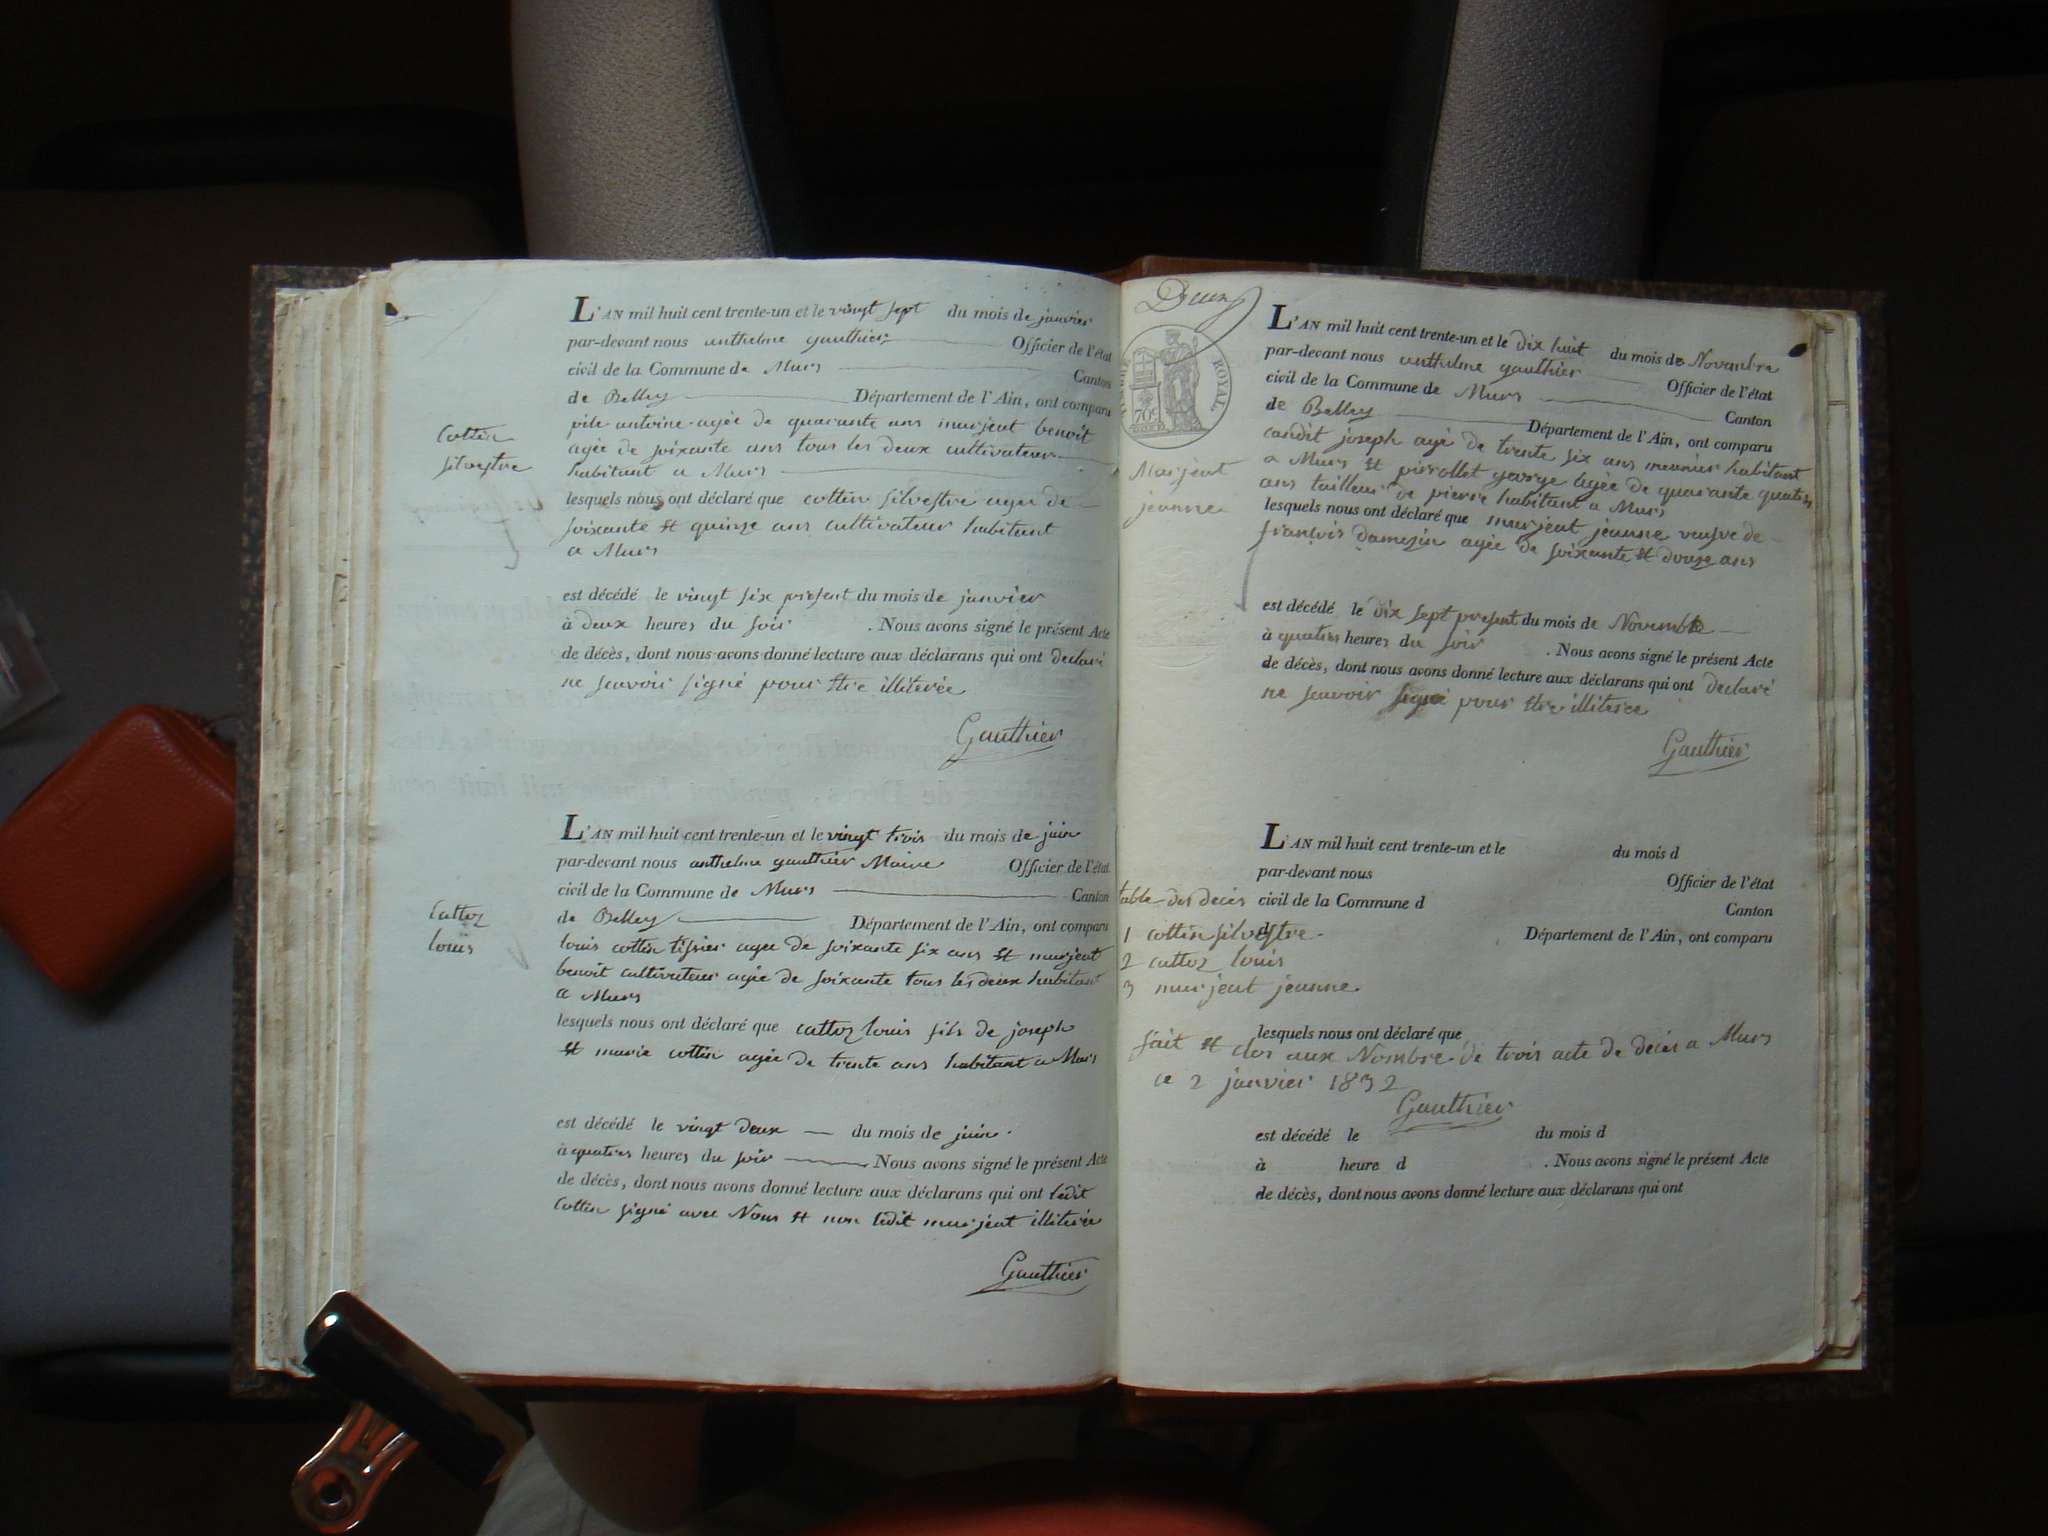 cottin
silvestre
L'AN mil huit cent trente-un et le vingt sept du mois de janvier
par-devant nous anthelme gauthier Officier de l'état
civil de la Commune de Murs Canton
de Belley Département de l'Ain, ont comparu
antoine agée de quarante ans murjeat benoit
agée de soixante ans tous les deux cultivateur
habitant a Murs
lesquels nous ont déclaré que cottin silvestre agée de
soixante et quinze ans cultivateur habitant
a Murs
est décédé le vingt six présent du mois de janvier
à deux heures du soir . Nous avons signé le présent Acte
de décès, dont nous avons donné lecture aux déclarans qui ont declaré
ne scavoir signé pour etre illiterée
Gauthier
cattoz
louis
L'AN mil huit cent trente-un et le vingt trois du mois de juin
par-devant nous anthelme gauthier Maire Officier de l'état
civil de la Commune de Murs Canton
de Belley Département de l'Ain, ont comparu
louis cottin tissier agée de soixante six ans et murjeat
benoit cultivateur agée de soixante tous les deux habitant
a Murs
lesquels nous ont déclaré que cattoz louis fils de joseph
et marie cottin agée de trente ans habitant a Murs
est décédé le vingt deux du mois de juin
à quatres heures du soir Nous avons signé le présent Acte
de décès, dont nous avons donné lecture aux déclarans qui ont ledit
cottin signé avec Nous et non ledit murjeat illiterée
Gauthier
Deux
ROYAL
70c
Murjeat
jeanne
L'AN mil huit cent trente-un et le dix huit du mois de Novembre
par-devant nous anthelme gauthier Officier de l'état
civil de la Commune de Murs Canton
de Belley Département de l'Ain, ont comparu
joseph agé de trente six ans meunier habitant
a Murs et pirollet george agée de quarante quatres
ans tailleur de pierre habitant a Murs
lesquels nous ont déclaré que murjeat jeanne veufve de
françois damezin agée de soixante et douze ans
est décédé le dix sept present du mois de Novembre
à quatres heures du soir . Nous avons signé le présent Acte
de décès, dont nous avons donné lecture aux déclarans qui ont declaré
ne scavoir signé pour etre illiterée
Gauthier
L'AN mil huit cent trente-un et le du mois d
par-devant nous Officier de l'état
table des décès civil de la Commune d Canton
1 cottin silvestre d Département de l'Ain, ont comparu
2 cattoz louis
3 murjeat jeanne
lesquels nous ont déclaré que
fait et clos aux Nombre de trois acte de décès a Murs
ce 2 janvier 1832
Gauthier
est décédé le du mois d
à heure d . Nous avons signé le présent Acte
de décès, dont nous avons donné lecture aux déclarans qui ont